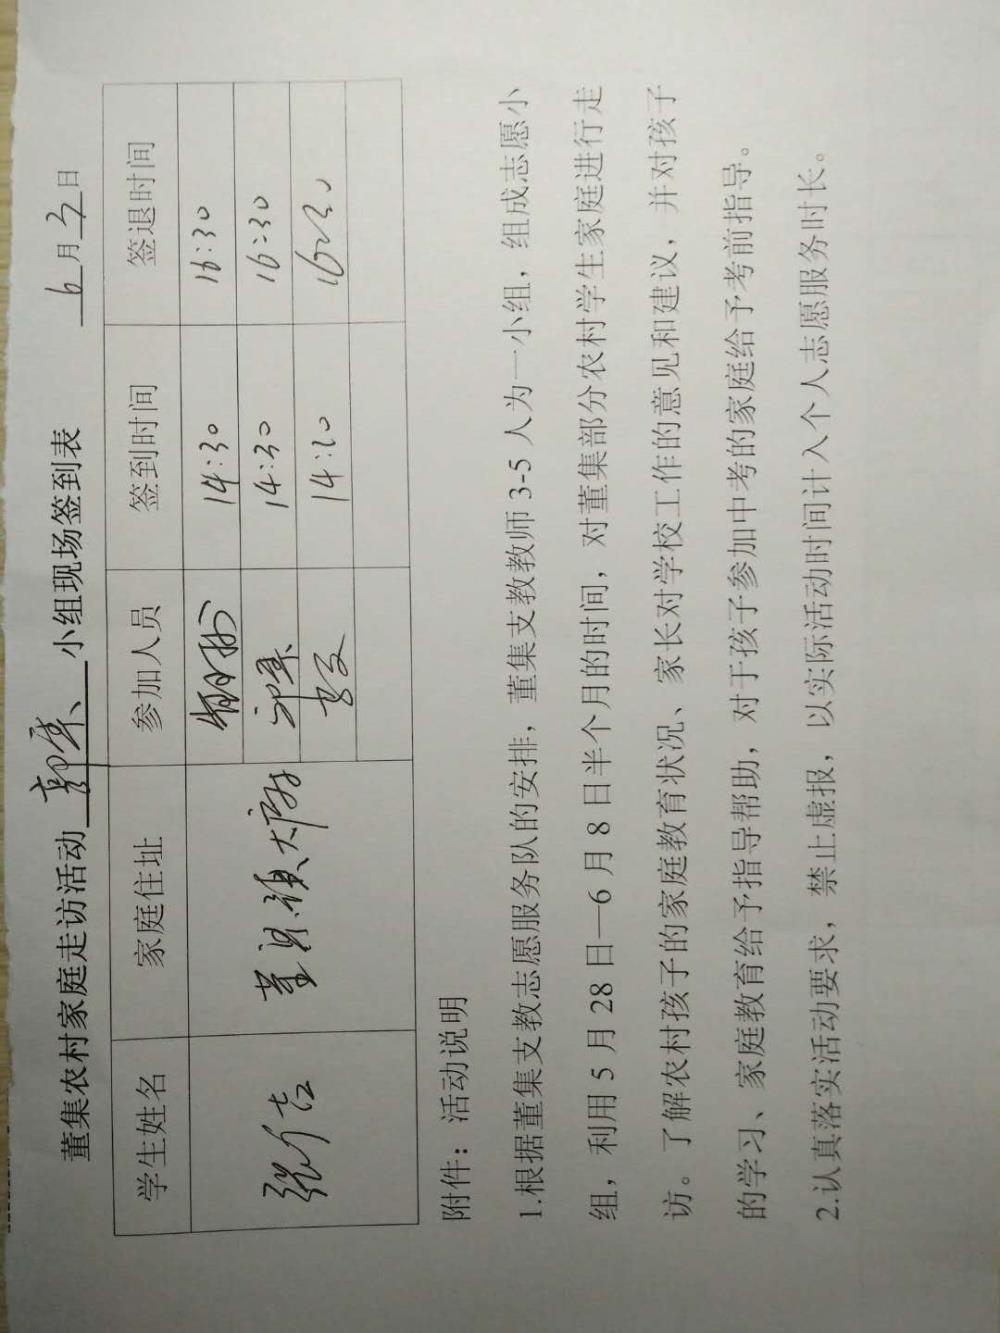 董集农村家庭走访活动 小组现场签到表 6月3日
学生姓名 家庭住址 参加人员 签到时间 签退时间
14:30 16:30
14:30 16:30
附件：活动说明
1.根据董集支教志愿服务队的安排，董集支教教师3-5人为一小组，组成志愿小
组，利用5月28日—6月8日半个月的时间，对董集部分农村学生家庭进行走
访。了解农村孩子的家庭教育状况、家长对学校工作的意见和建议，并对孩子
的学习、家庭教育给予指导帮助，对于孩子参加中考的家庭给予考前指导。
2.认真落实活动要求，禁止虚报，以实际活动时间计入个人志愿服务时长。